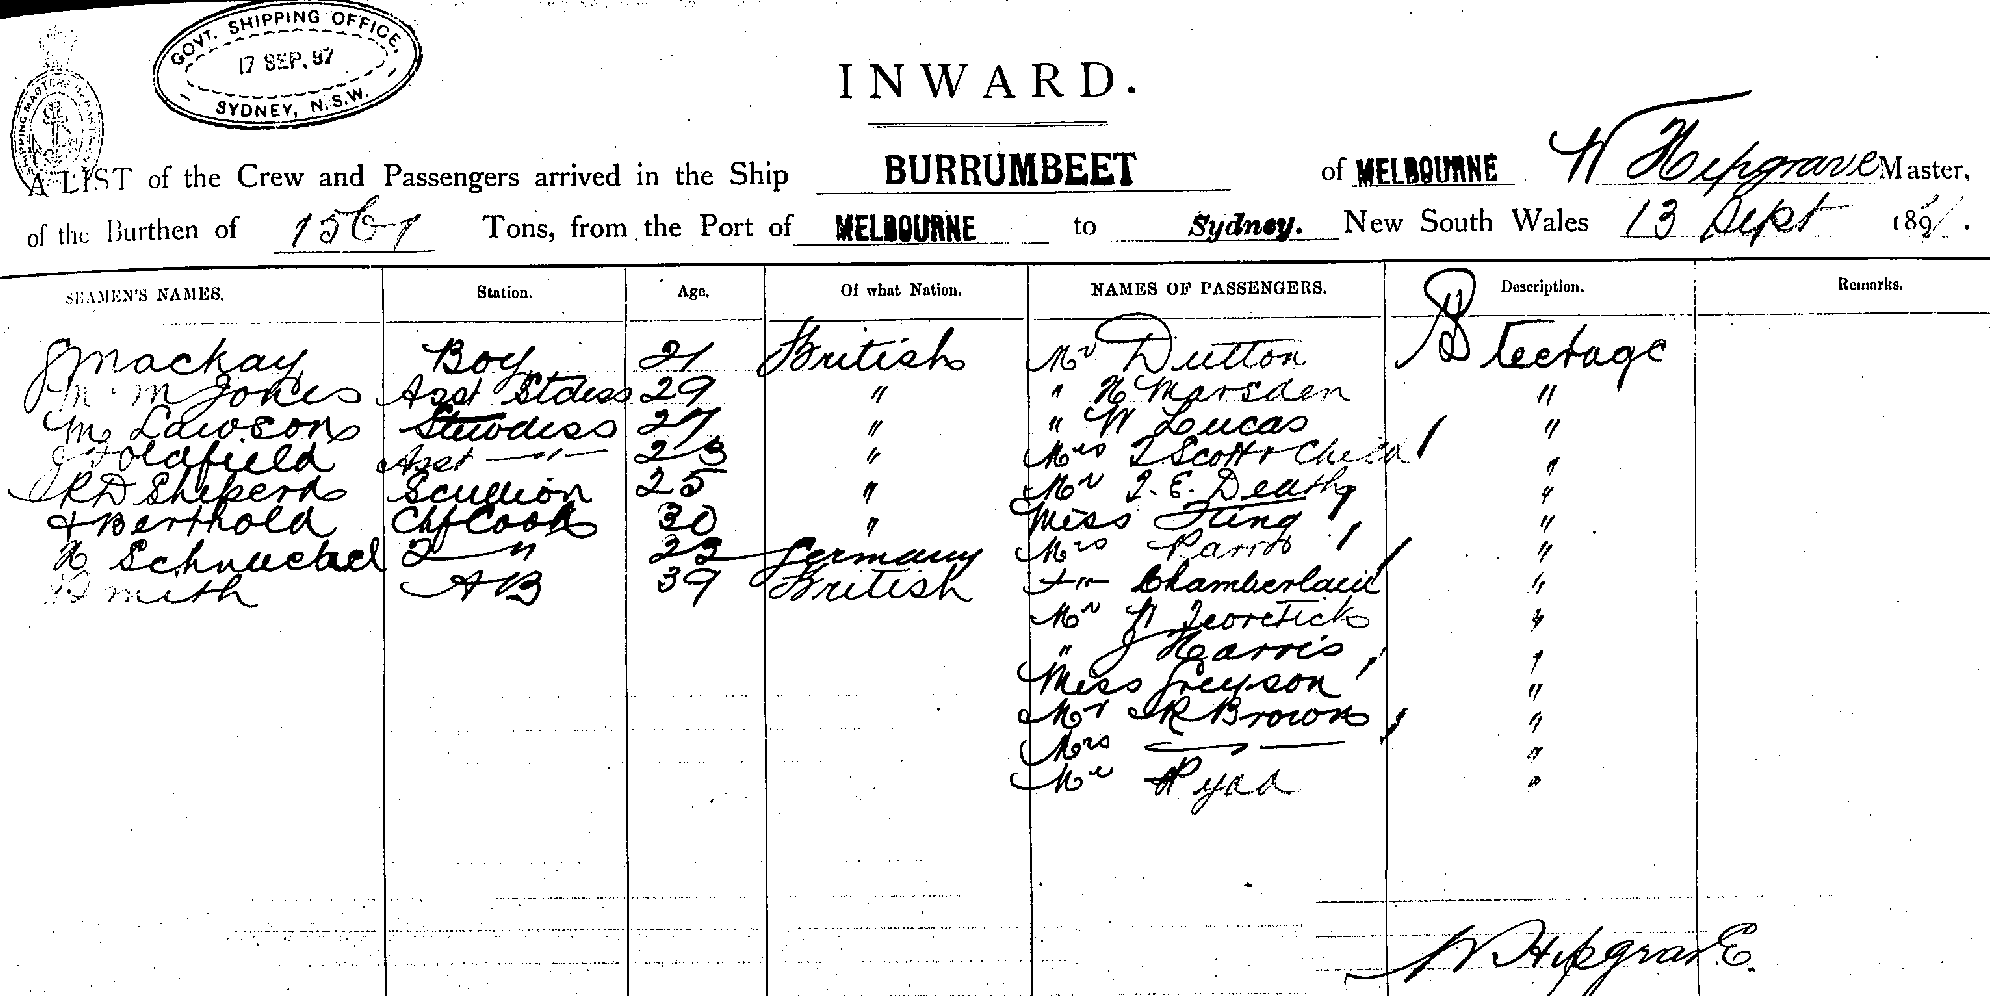 GOVT. SHIPPING OFFICE,
17 SEP. 97
SYDNEY, N.S.W.
INWARD.
A LIST of the Crew and Passengers arrived in the Ship BURRUMBEET of MELBOURNE W Hipgrave Master,
of the Burthen of Tons, from the Port of MELBOURNE to Sydney. New South Wales 13 Sept 189
SEAMEN'S NAMES. Station. Age. Of what Nation. NAMES OF PASSENGERS. Description. Remarks.
J Mackay Boy 21 British Mr Dutton Steerage
M Jones Asst Stdess 29 " " H Marsden "
M Lawson Stewdess 27 " " W Lucas "
Oldfield Asst — " — 23 " Mrs Scott & Child "
R D Sheperd Scullion 25 " Mr E. Death "
Berthold Chf Cook 30 " Miss "
H Schnuckel 2 " 22 Germany Mrs "
Smith AB 39 British — " — Chamberlain "
Mr W "
" J Harris "
Miss Greyson "
Mr R Brown "
Mrs — " — "
Mr Ryan "
W Hipgrave.